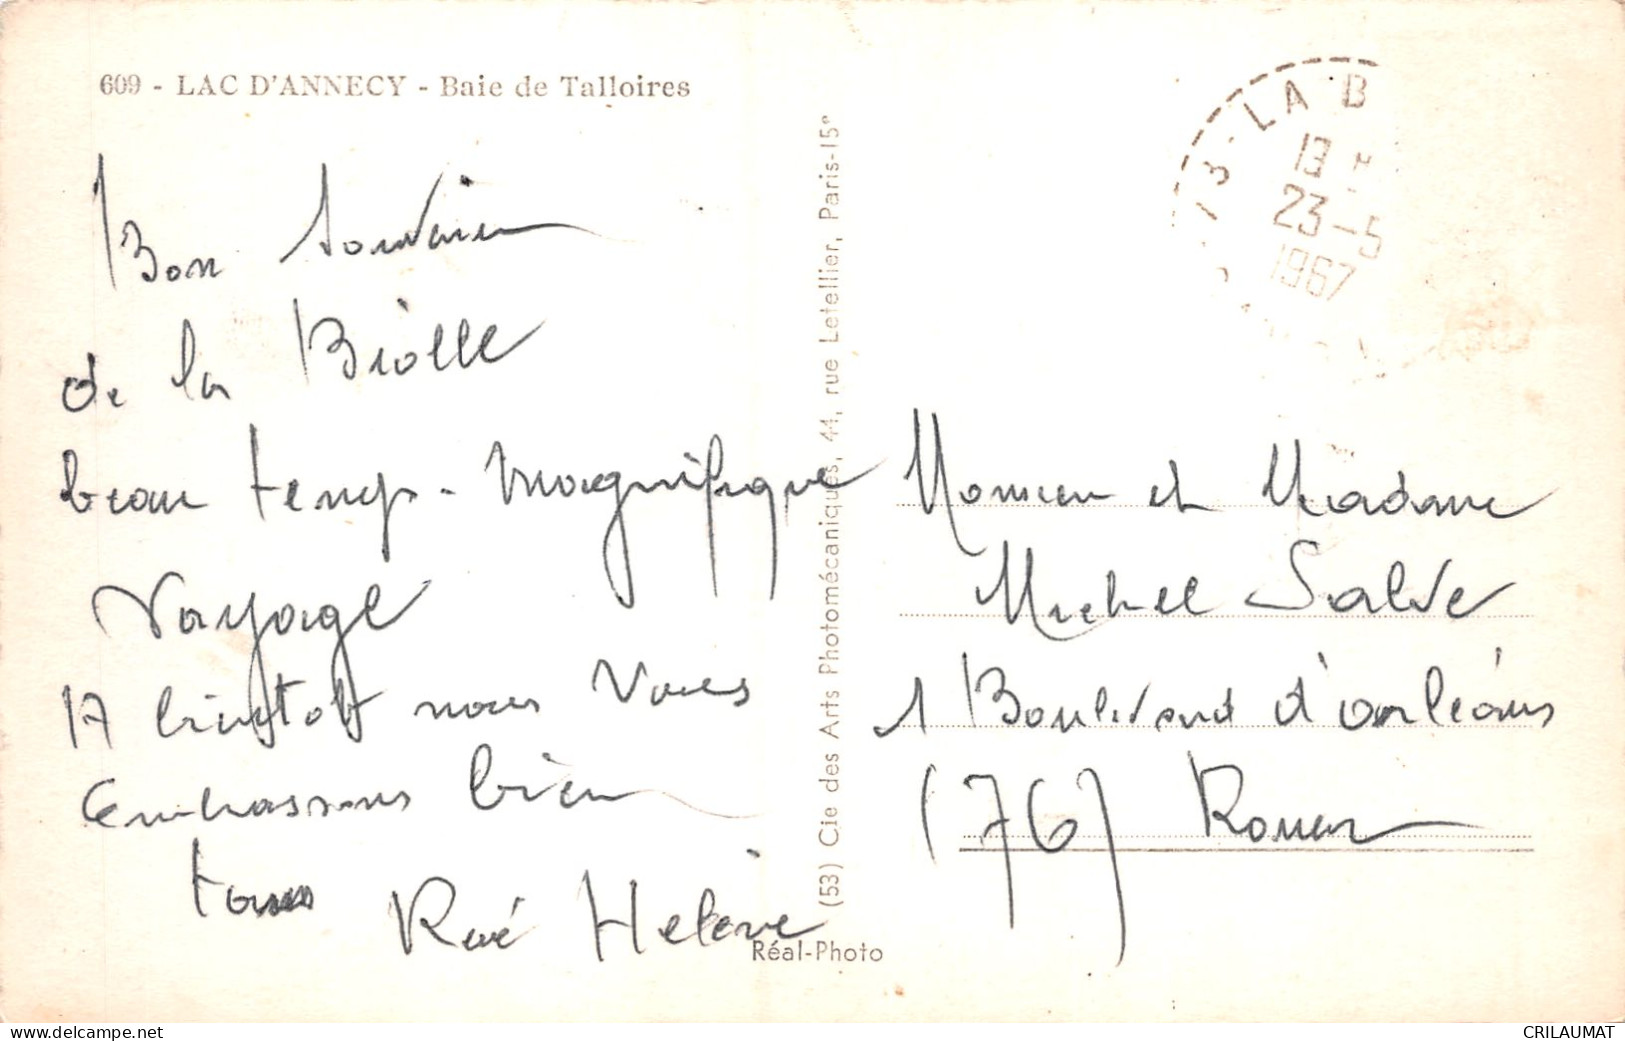 609 - LAC D'ANNECY - Baie de Talloires
Bon Souvenir
de la Biolle
beau temps - magnifique
Voyage
A bientot nous vous
Embrassons bien
tous
René Helene
(53) Cie des Arts Photomécaniques, 44, rue Letellier, Paris-15e
Réal-Photo
73-LA B
13
23-5
1967
Monsieur et Madame
Michel Salve
1 Boulevard d'orléans
(76) Rouen
www.delcampe.net
CRILAUMAT